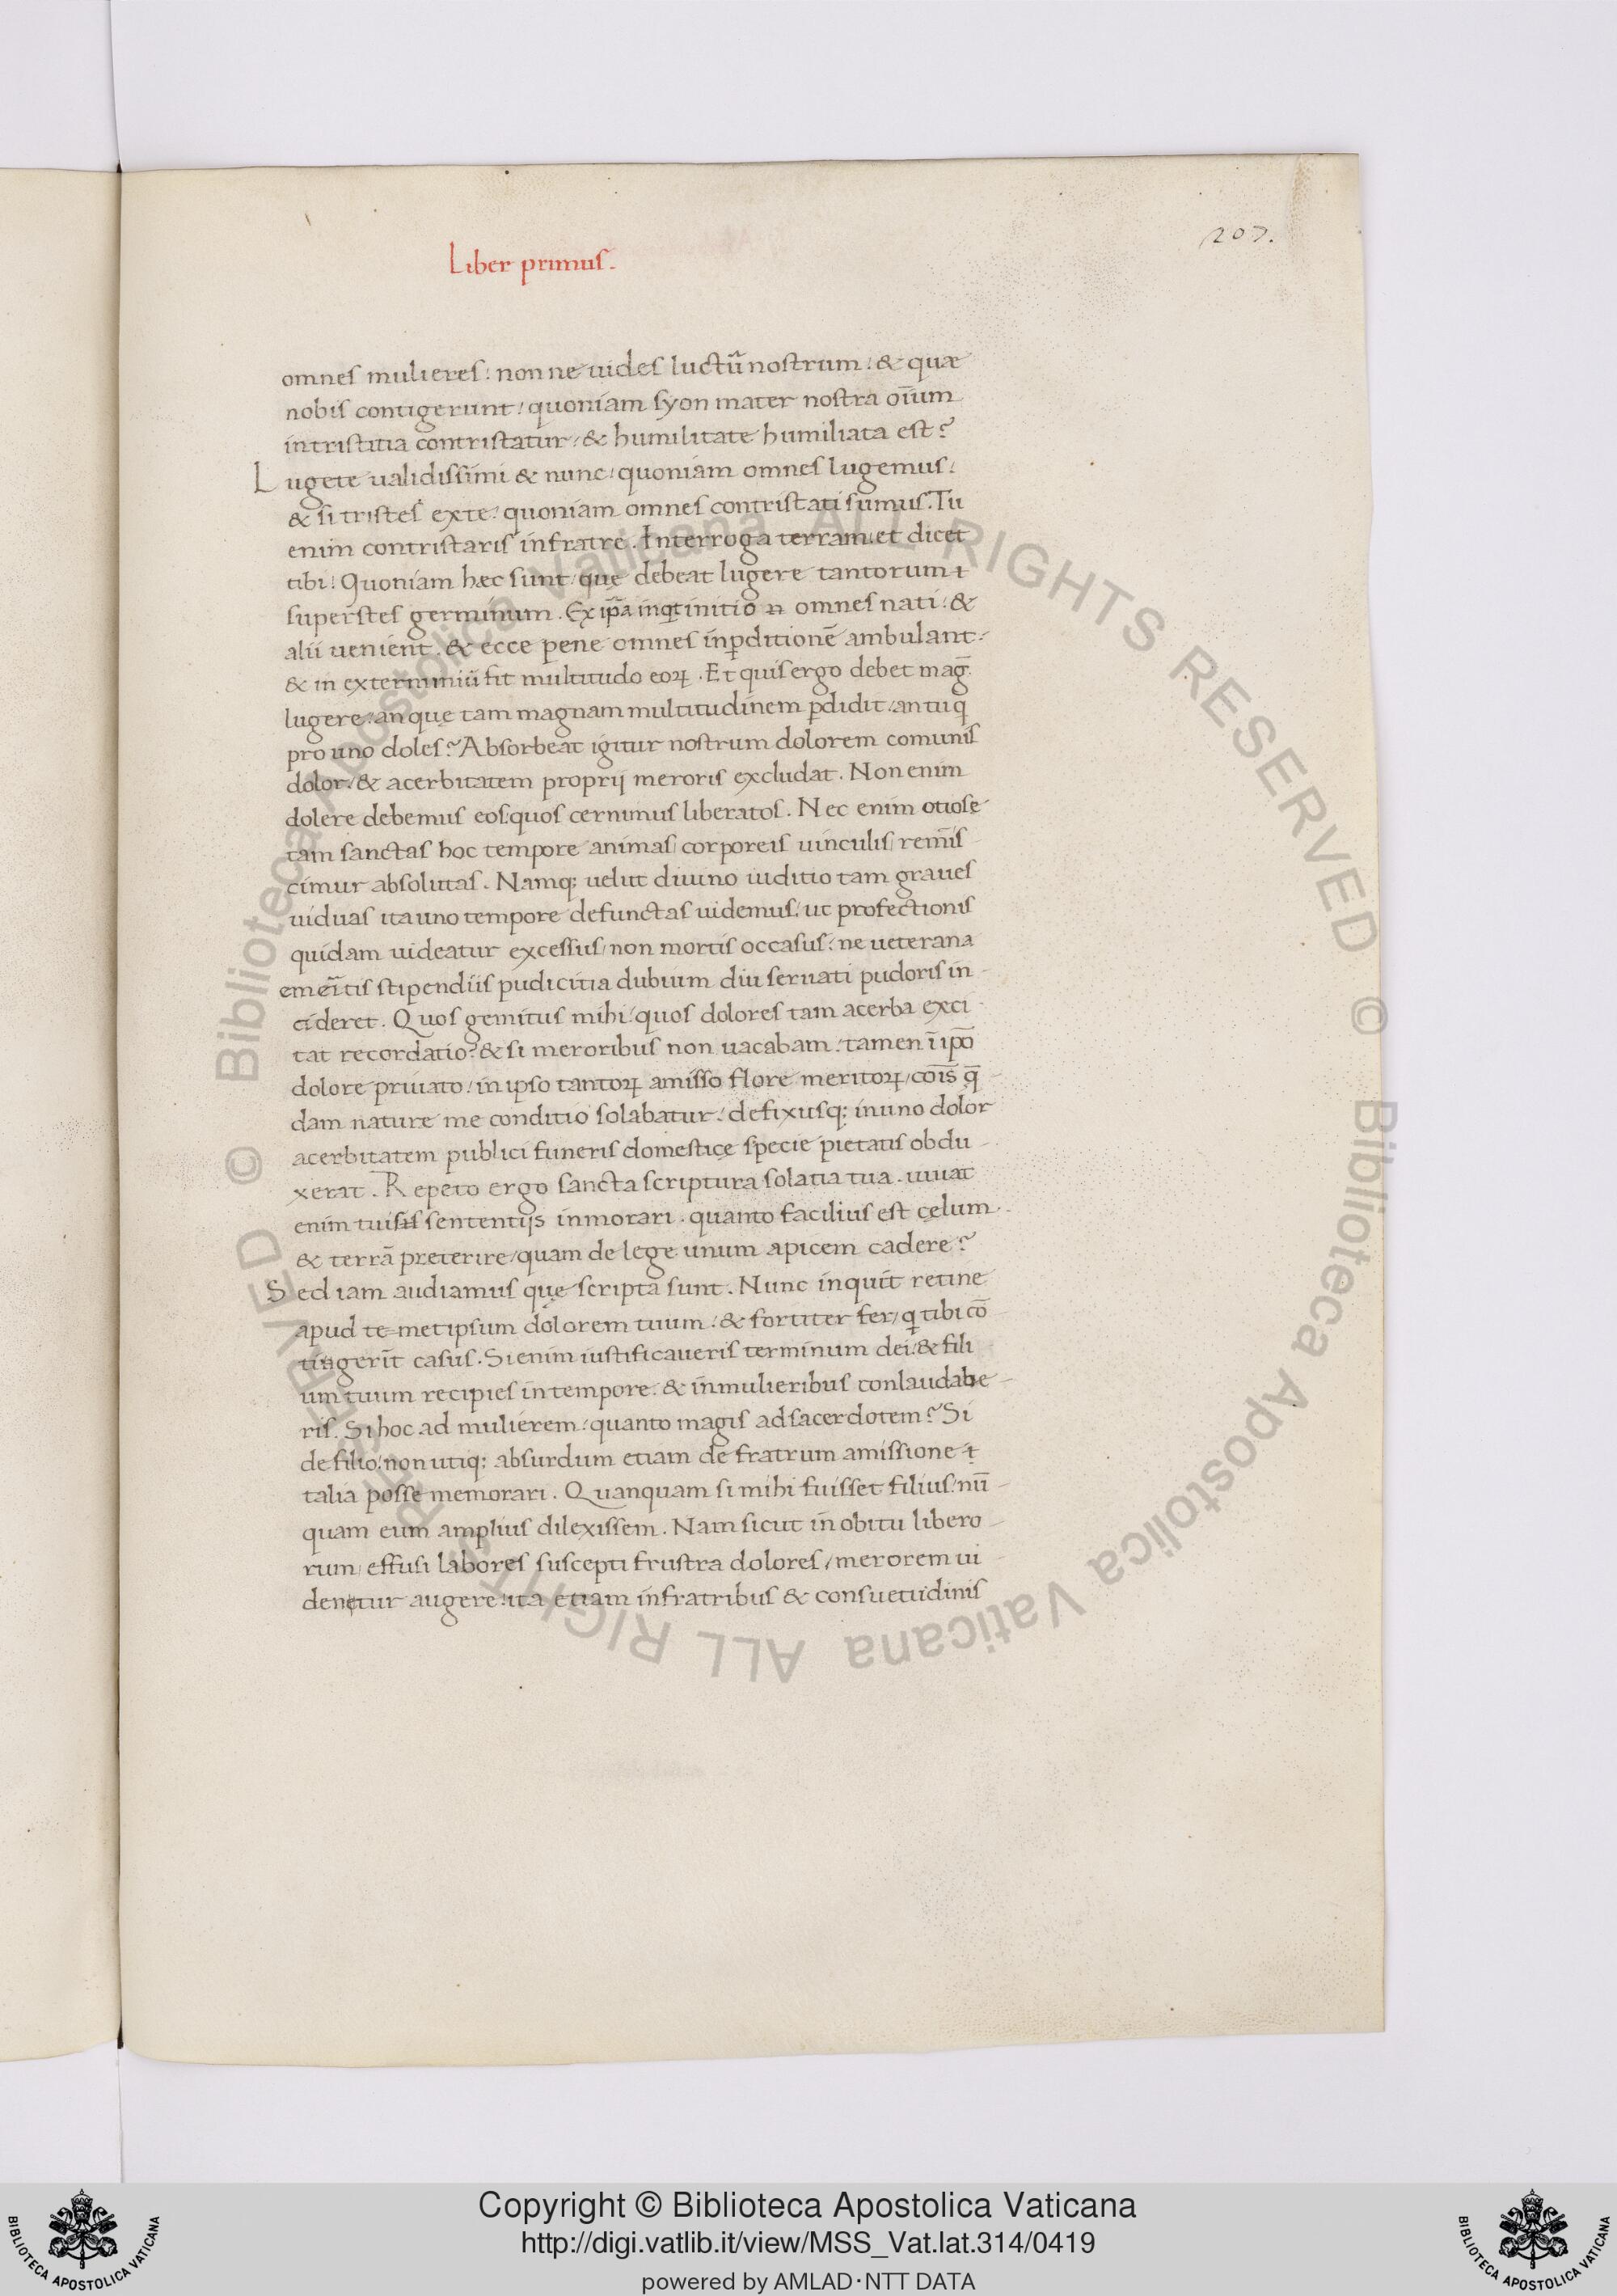 207.
Liber primus.
omnes mulieres: nonne uides luctū nostrum: & quæ
nobis contigerunt: quoniam syon mater nostra oīum
intristitia contristatur: & humilitate humiliata est?
Lugete ualidissimi & nunc: quoniam omnes lugemus:
& si tristes exte: quoniam omnes contristati sumus. Tu
enim contristaris infratre. Interroga terram: et dicet
tibi: Quoniam hæc sunt: quę debeat lugere tantorum
superstes germinum. Ex ip̄a inq̇t initio omnes nati: &
alii uenient. & ecce pene omnes inꝑditionē ambulant:
& in exterminiū fit multitudo eoꝝ. Et quis ergo debet mag̅
lugere: an quę tam magnam multitudinem ꝑdidit: an tu q̇
pro uno doles? Absorbeat igitur nostrum dolorem comunis
dolor: & acerbitatem proprij meroris excludat. Non enim
dolere debemus eos: quos cernimus liberatos. Nec enim otiose
tam sanctas hoc tempore animas/ corporeis uinculis/ remīs
cimur absolutas. Namq; uelut diuino iuditio tam graues
uiduas ita uno tempore defunctas uidemus: ut profectionis
quidam uideatur excessus/ non mortis occasus: ne ueterana
emeritis stipendiis pudicitia dubium diu seruati pudoris in
cideret. Quos gemitus mihi: quos dolores tam acerba exci
tat recordatio? & si meroribus non uacabam: tamen ī ip̄o
dolore priuato: in ipso tantoꝝ amisso flore meritoꝝ: cōis q̄
dam nature me conditio solabatur: defixusq; inuno dolor
acerbitatem publici funeris domesticę specie pietatis obdu
xerat. Repeto ergo sancta scriptura solatia tua. iuuat
enim tuis sententijs inmorari. quanto facilius est cęlum
& terrā preterire/ quam de lege unum apicem cadere?
Sed iam audiamus quę scripta sunt. Nunc inquit retine
apud te=metipsum dolorem tuum: & fortiter fer: q̇ tibi cō
tingerīt casus. Si enim iustificaueris terminum dei: & fili
um tuum recipies in tempore: & inmulieribus conlaudabe
ris. Si hoc ad mulierem: quanto magis ad sacerdotem? Si
de filio: non utiq; absurdum etiam de fratrum amissione
talia posse memorari. Quanquam si mihi fuisset filius: nū
quam eum amplius dilexissem. Nam sicut in obitu libero
rum/ effusi labores suscepti frustra dolores/ merorem ui
denetur augere: ita etiam infratribus & consuetudinis
Copyright © Biblioteca Apostolica Vaticana
http://digi.vatlib.it/view/MSS_Vat.lat.314/0419
powered by AMLAD·NTT DATA
BIBLIOTECA APOSTOLICA VATICANA
BIBLIOTECA APOSTOLICA VATICANA
© Biblioteca Apostolica Vaticana ALL RIGHTS RESERVED © Biblioteca Apostolica Vaticana ALL RIGHTS RESERVED